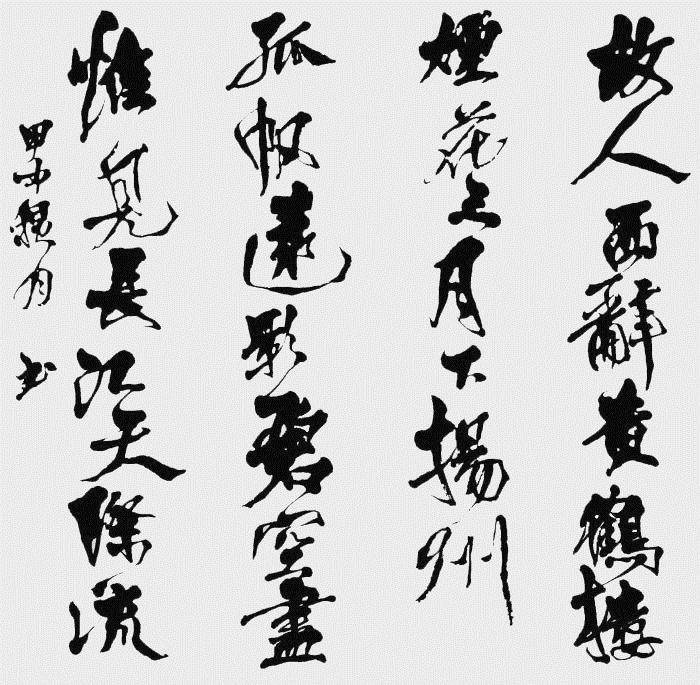 故人西辭黄鶴樓
煙花三月下揚州
孤帆遠影碧空盡
惟見長江天際流
月 书